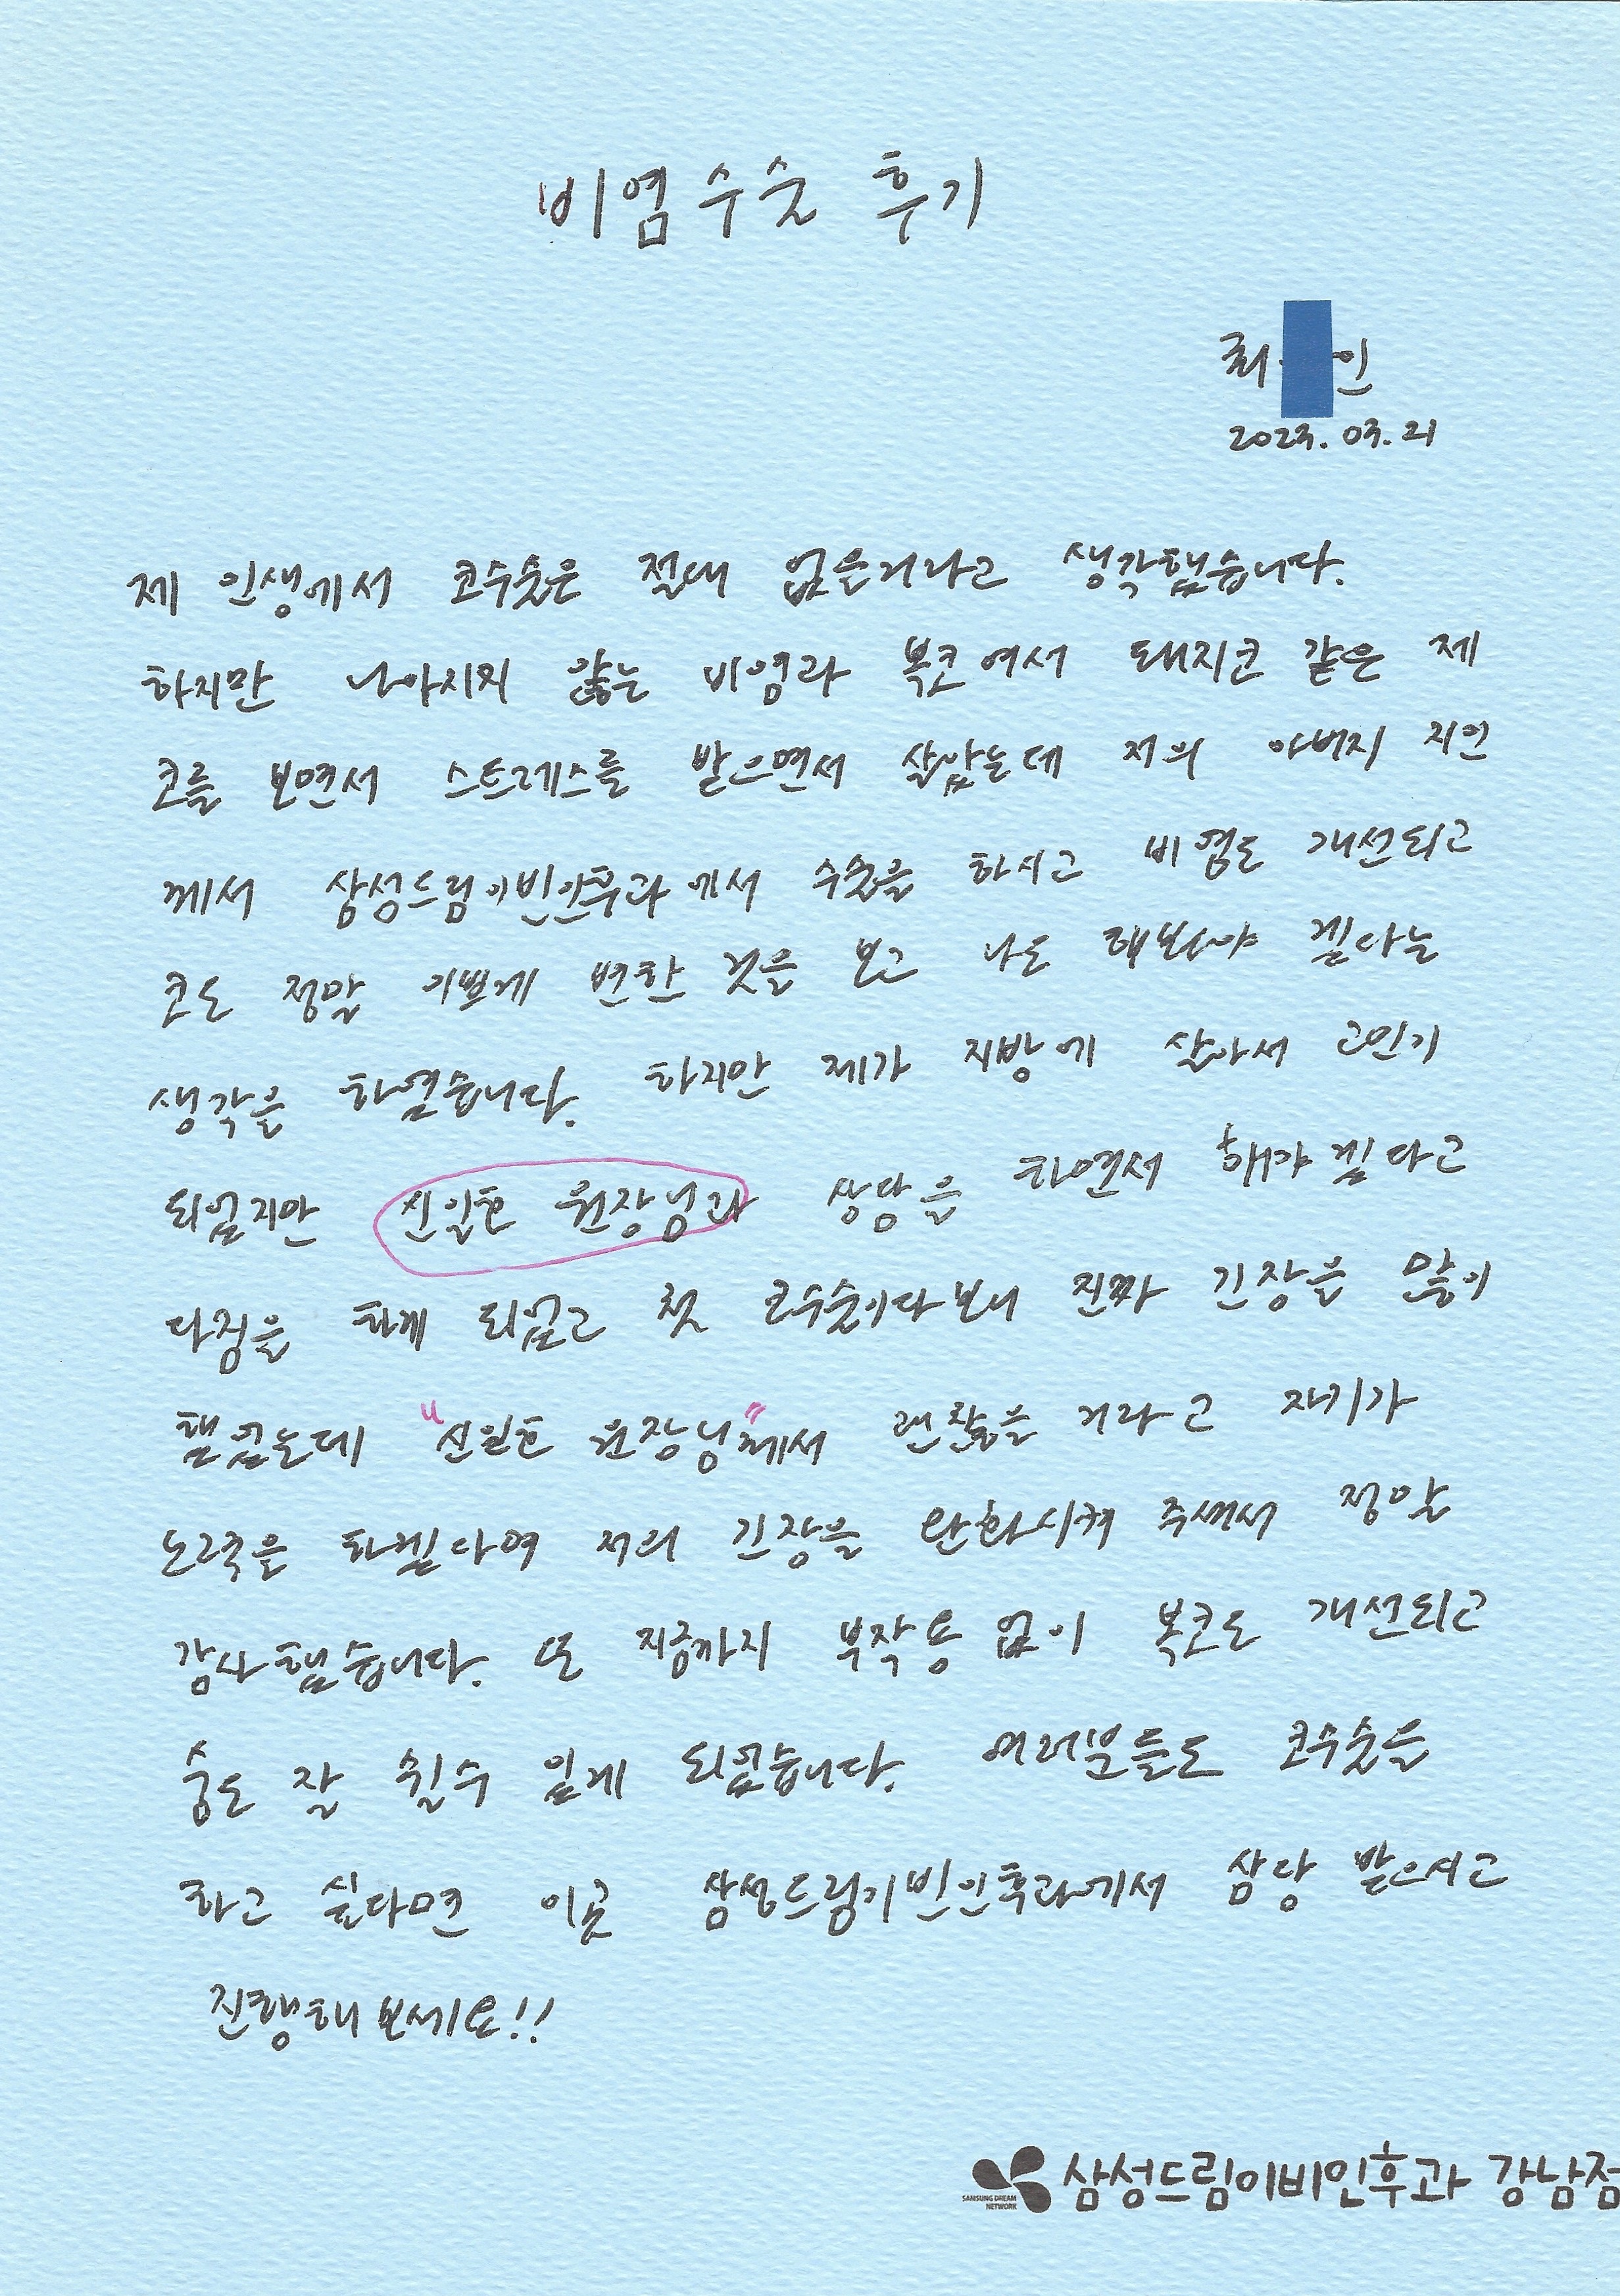 비염수술 후기
최 인
2023.03.21
제 인생에서 코수술은 절대 없을거라고 생각했습니다.
하지만 나아지지 않는 비염과 복코여서 돼지코 같은 제
코를 보면서 스트레스를 받으면서 살았는데 저의 아버지 지인
께서 삼성드림이빈인후과에서 수술을 하시고 비염도 개선되고
코도 정말 이쁘게 변한 것을 보고 나도 해봐야 겠다는
생각을 하였습니다. 하지만 제가 지방에 살아서 고민이
되었지만 신일호 원장님과 상담을 하면서 해야 겠다고
다짐을 하게 되었고 첫 코수술이다보니 진짜 긴장을 많이
했었는데 "신일호 원장님"께서 괜찮을 거라고 자기가
노력을 하겠다며 저의 긴장을 완화시켜 주셔서 정말
감사했습니다. 또 지금까지 부작용 없이 복코도 개선되고
숨도 잘 쉴수 있게 되었습니다. 여러분들도 코수술을
하고 싶다면 이곳 삼성드림이빈인후과에서 상담 받으시고
진행해 보세요!!
SAMSUNG DREAM
NETWORK
삼성드림이비인후과 강남점